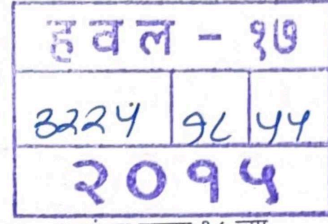 ह व ल - १७
३२२५ १८ ५५
२०१५